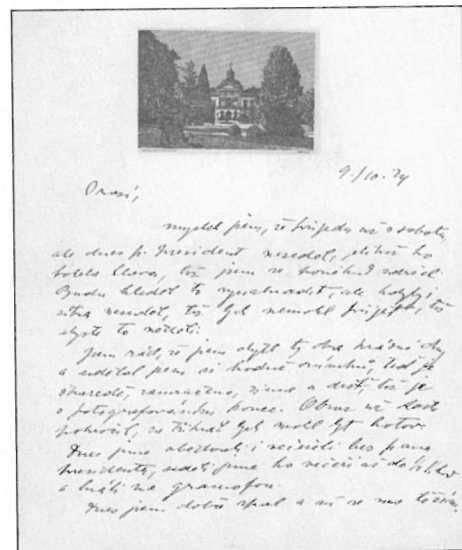 9./10.34
Drazí,
myslel jsem, že přijedu už v sobotu,
ale dnes p. president neseděl, jelikož ho
bolela hlava, tož jsem se
Budu hledět to vynahradit, ale kdyby i
zítra neseděl, tož bych nemohl přijet, tož
abyste to věděli.
Jsem rád, že jsem chytl ty dva krásné dny
a udělal jsem si hodně snímků, teď je
škaredě, zamračeno, zima a déšť, tož je
s fotografováním konec. Obraz už dost
pokročil, za týden bych mohl být hotov.
Dnes jsme obědvali i večeřeli bez pana
presidenta, seděli jsme ho večer až do
a hráli na gramofon.
Dnes jsem dobře spal a už se mo těším,